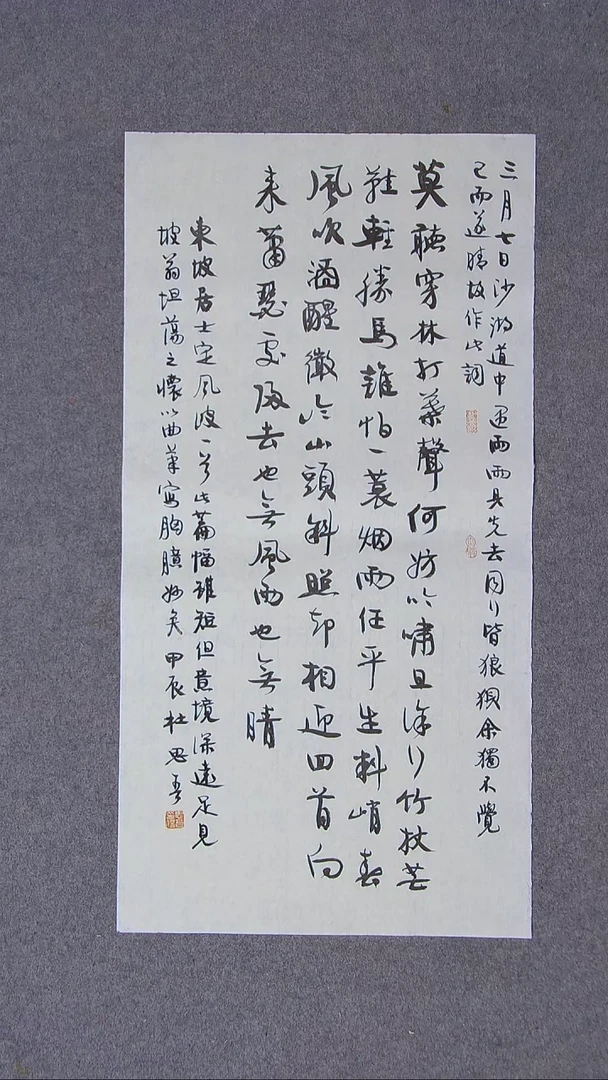 三月七日沙湖道中遇雨雨具先去同行皆狼狽余獨不覺
已而遂晴故作此詞
莫聽穿林打葉聲何妨吟嘯且徐行竹杖芒
鞋輕勝馬誰怕一蓑烟雨任平生料峭春
風吹酒醒微冷山頭斜照却相迎回首向
来蕭瑟處歸去也無風雨也無晴
東坡居士定風波一首此篇幅雖短但意境深遠足見
坡翁坦蕩之懷以曲筆寫胸臆妙矣甲辰杜思吾